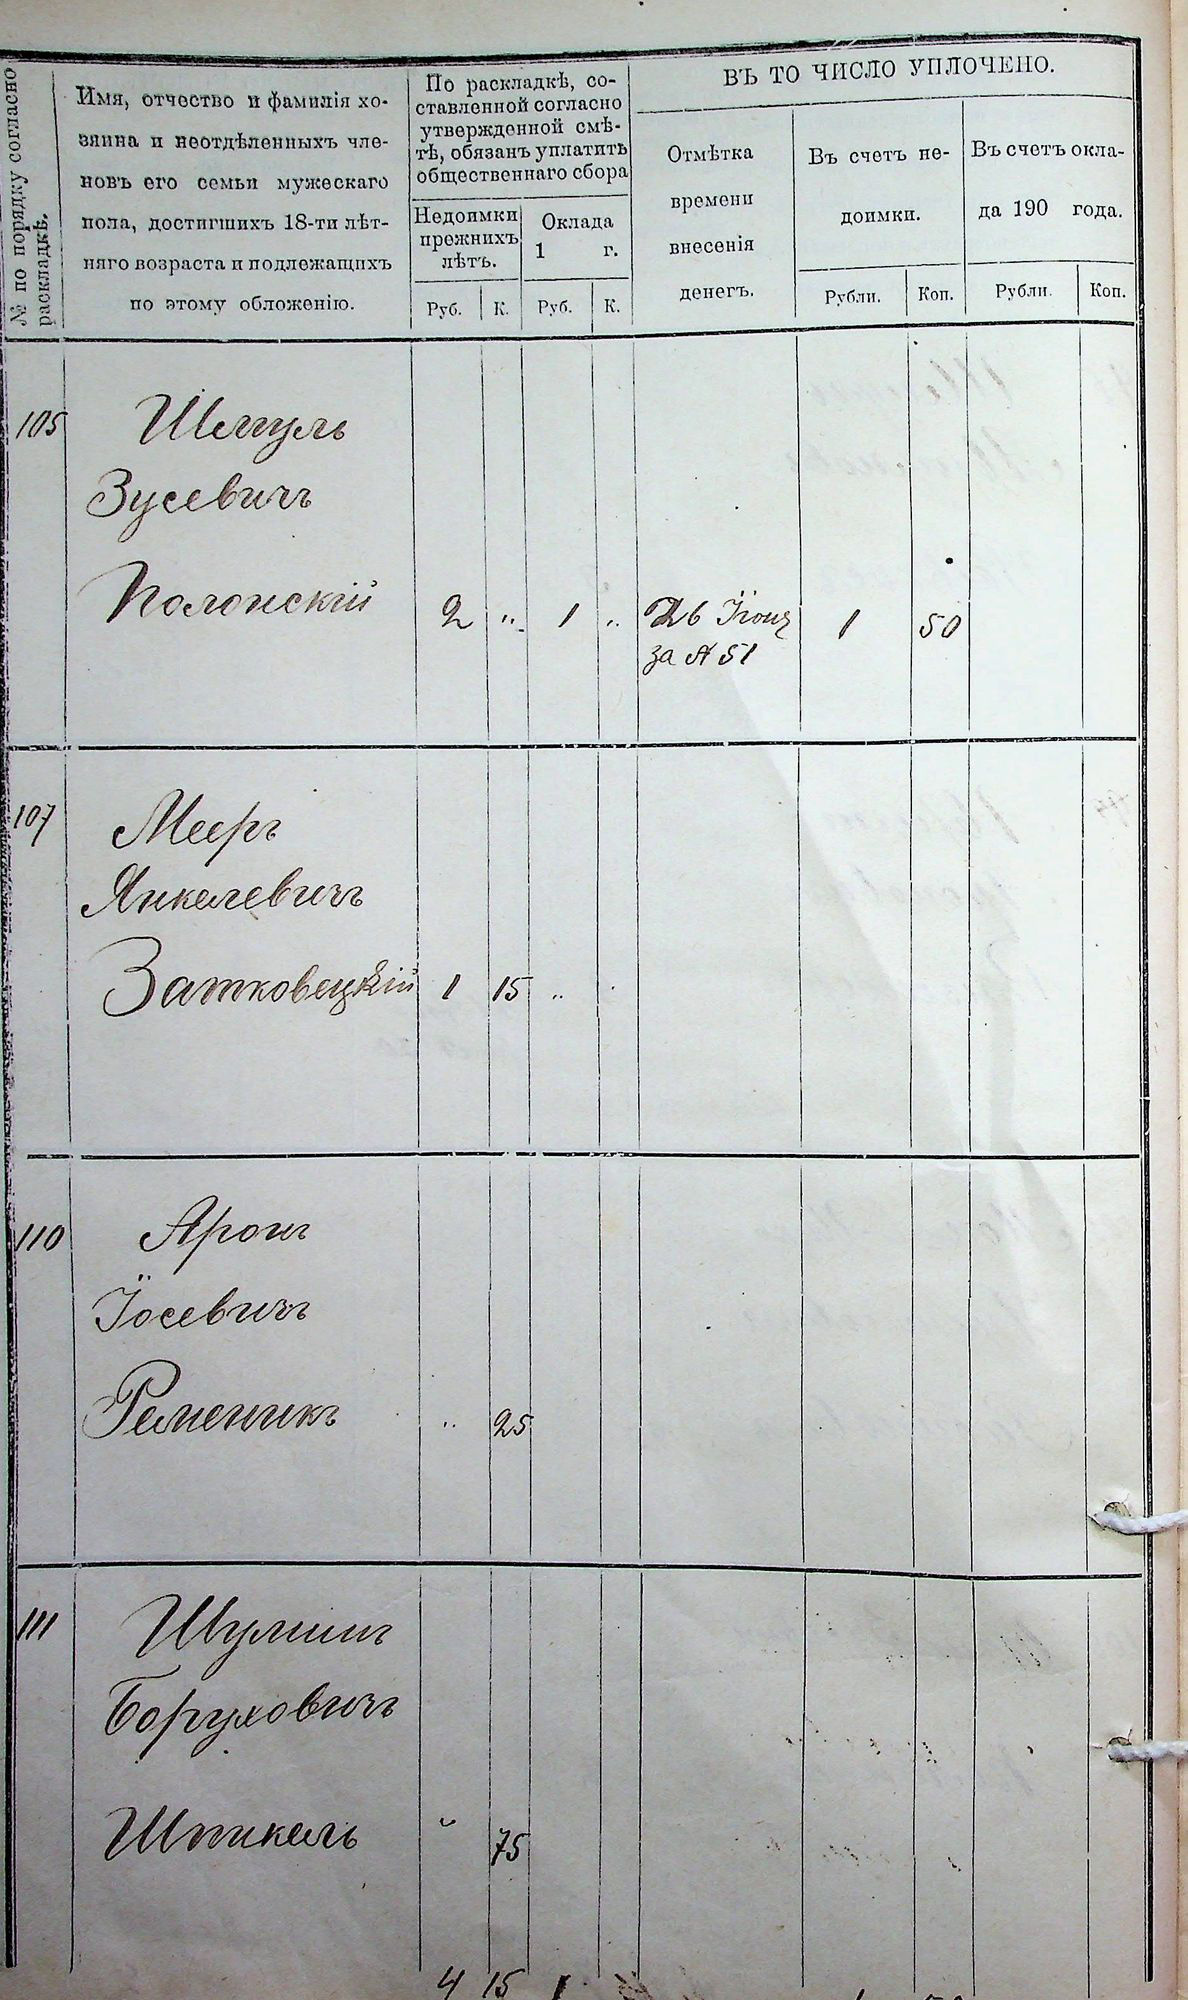 № по порядку согласно
раскладкѣ.
Имя, отчество и фамилія хо-
зяина и неотдѣленныхъ чле-
новъ его семьи мужескаго
пола, достигшихъ 18-ти лѣт-
няго возраста и подлежащихъ
по этому обложенію.
По раскладкѣ, со-
ставленной согласно
утвержденной смѣ-
тѣ, обязанъ уплатить
общественнаго сбора
Недоимки
прежнихъ
лѣтъ.
Оклада
1 г.
Руб. К. Руб. К.
ВЪ ТО ЧИСЛО УПЛОЧЕНО.
Отмѣтка
времени
внесенія
денегъ.
Въ счетъ не-
доимки.
Рубли. Коп.
Въ счетъ окла-
да 190 года.
Рубли. Коп.
105 Шмуль
Зусевичъ
Полонскій 2 " 1 " 26 Іюня 1 50
за № 51
107 Мееръ
Янкелевичъ
Затковецкій 1 15 "
110 Аронъ
Іосевичъ
Ременикъ " 25
111 Шулимъ
Боруховичъ
Штикель " 75
4 15 1